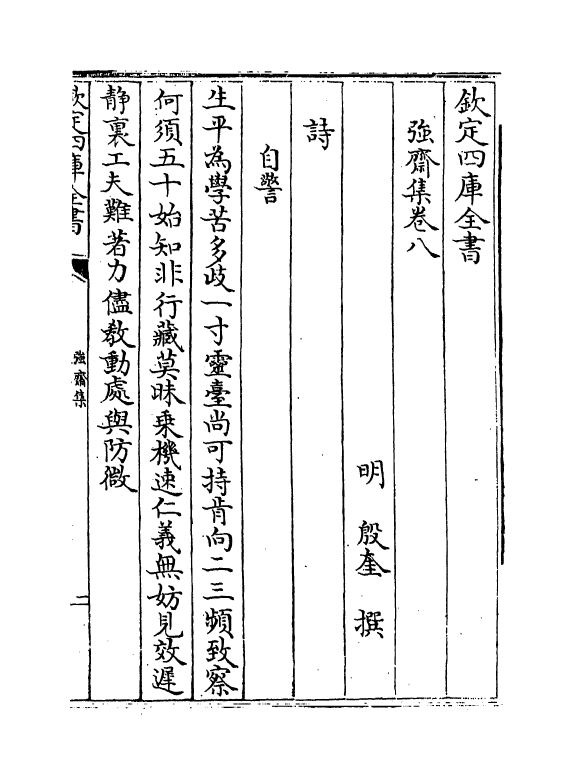 欽定四庫全書
強齋集卷八
明 殷奎 撰
詩
自警
生平為學苦多歧一寸靈臺尚可持肯向二三頻致察
何須五十始知非行藏莫昧乗機速仁義無妨見效遲
静裏工夫難著力儘教動處與防微
欽定四庫全書
強齋集